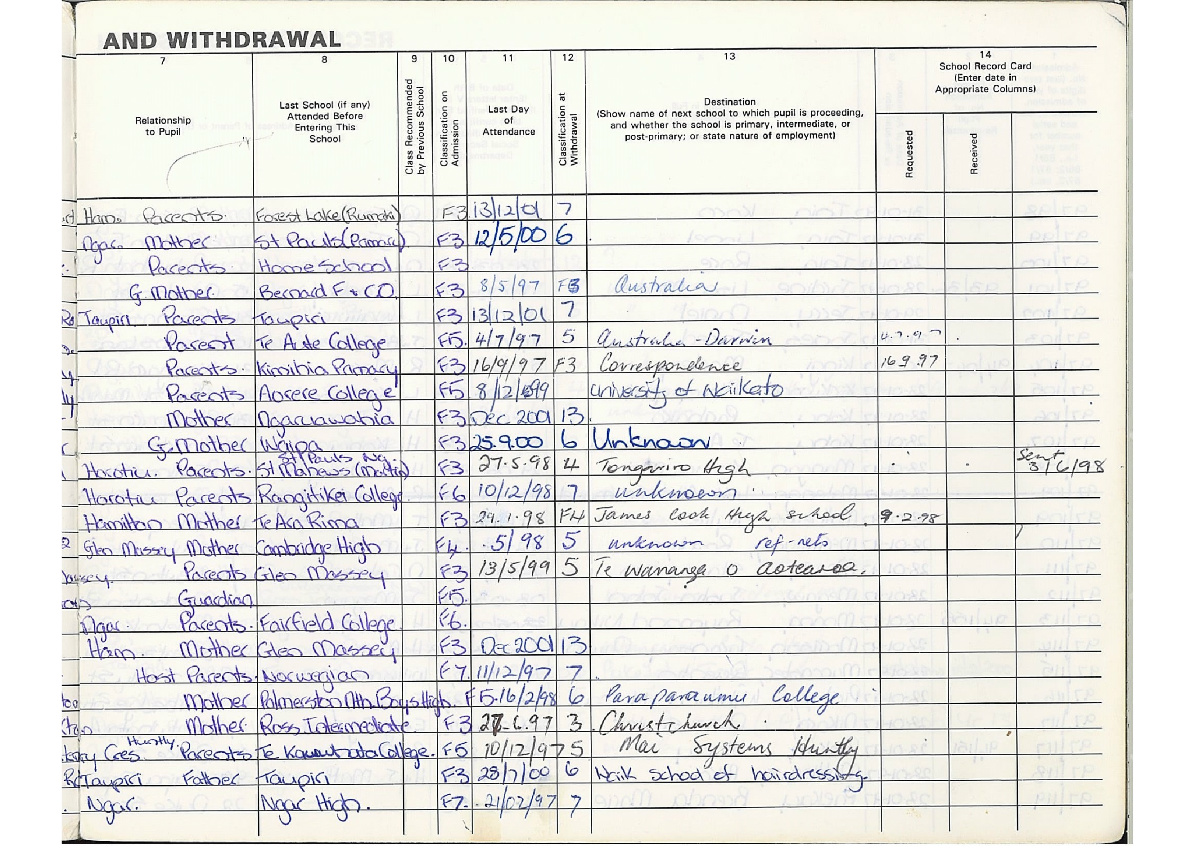 AND WITHDRAWAL
7 8 9 10 11 12 13 14
Relationship to Pupil
Last School (if any) Attended Before Entering This School
Class Recommended by Previous School
Classification on Admission
Last Day of Attendance
Classification at Withdrawal
Destination
(Show name of next school to which pupil is proceeding, and whether the school is primary, intermediate, or post-primary; or state nature of employment)
School Record Card
(Enter date in Appropriate Columns)
Requested
Received
Ham. Parents. Forest Lake (Rumaki) F3 13/12/01 7
Ngar. Mother St Pauls (Primary) F3 12/5/00 6
Parents Home School F3
G. Mother Bernard F & CO. F3 8/5/97 F3 Australia
Taupiri Parents Taupiri F3 13/12/01 7
Parent Te Aute College F5. 4/7/97 5 Australia - Darwin 4.7.97
Parents Primary F3 16/9/97 F3 Correspondence 16 9 97
Parents Aorere College F5 8/12/99 University of Waikato
Mother Ngaruawahia F3 Dec 2001 13
G. Mother Waipa F3 25.9.00 6 Unknown
St Pauls Ng.
Horotiu. Parents. St Mathews (Martin) F3 27.5.98 4 Tongariro High Sent 3/6/98
Horotiu Parents Rangitikei College F6 10/12/98 7 unknown
Hamilton Mother Te Ara Rima F3 29.1.98 F4 James Cook High School 9.2.98
Glen Massey Mother Cambridge High F4. 5/98 5 unknown ref-nets
Parents Glen Massey F3 13/5/99 5 Te Wananga o Aotearoa.
Guardian F5.
Ngar. Parents. Fairfield College F6.
Ham. Mother Glen Massey F3 Dec 2001 13
Host Parents Norwegian F7 11/12/97 7
Mother Palmerston Nth. Boys High. F5. 16/2/98 6 Paraparaumu College
Mother Ross Intermediate F3 27.6.97 3 Christchurch
Huntly.
Parents Te Kauwhata College. F5 10/12/97 5 Mai Systems Huntly
Taupiri Father Taupiri F3 28/7/00 6 Waik school of hairdressing
Ngar. Ngar High. F7. 21/02/97 7